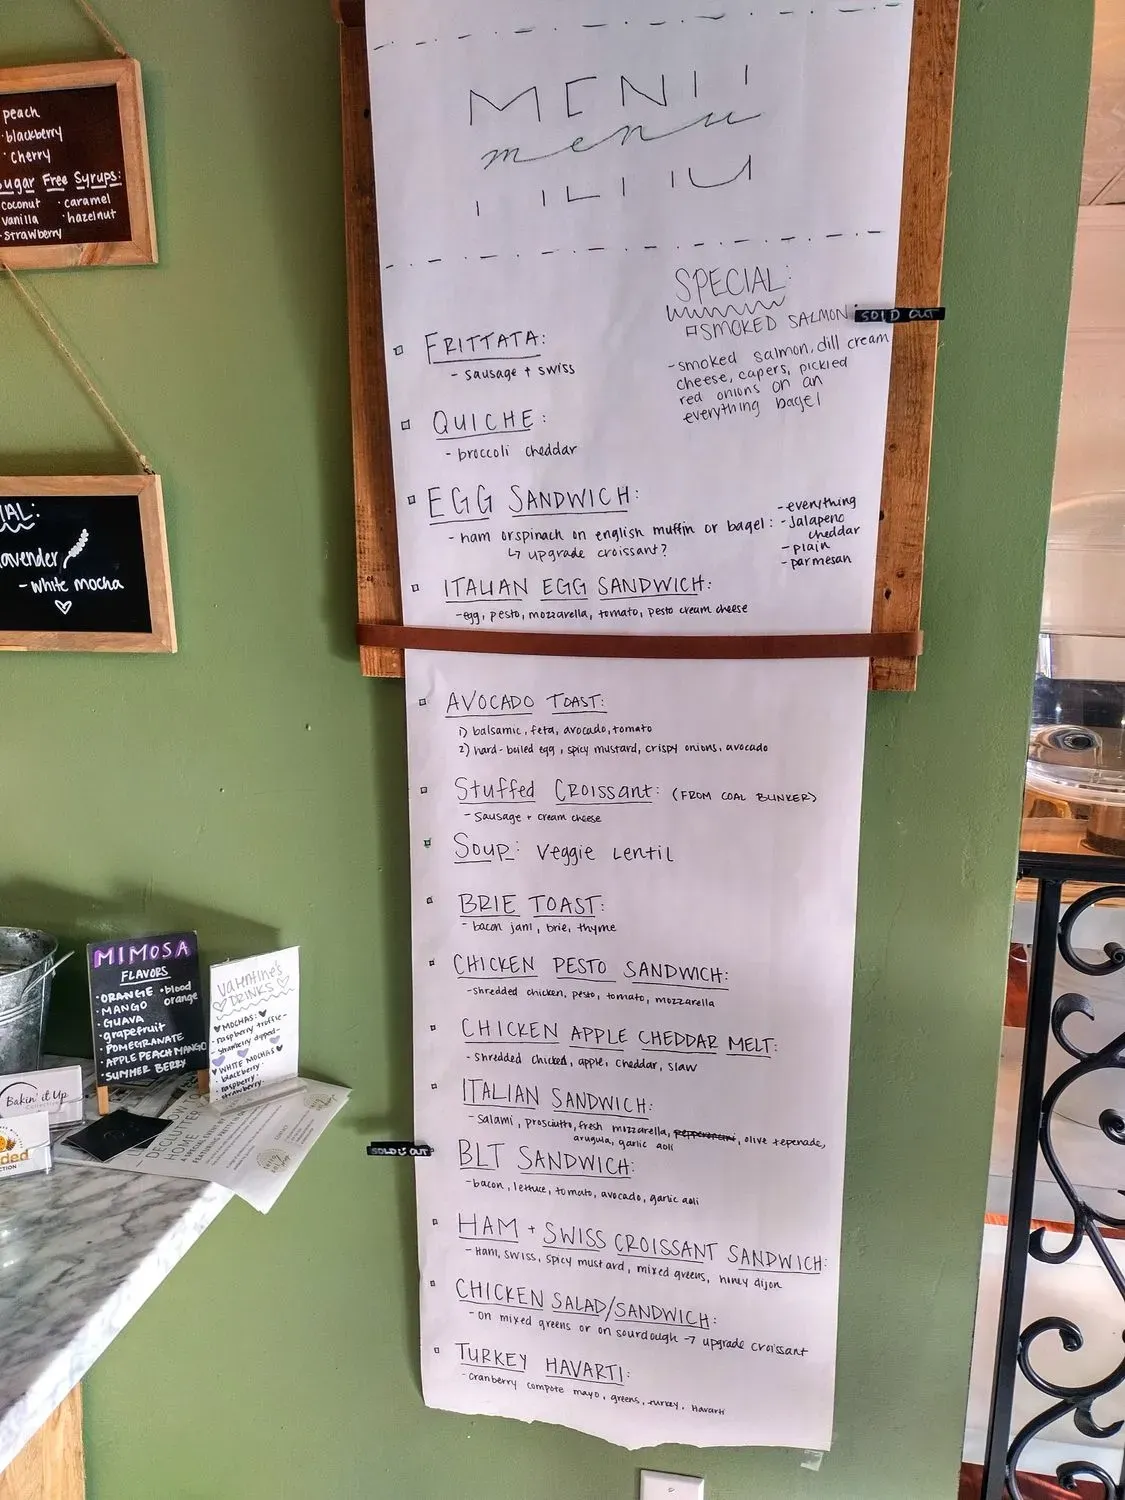 peach
· blackberry
· cherry
ugar Free Syrups:
coconut · caramel
vanilla · hazelnut
- strawberry
IAL:
avender
- white mocha
MENU
menu
SPECIAL:
SMOKED SALMON:
SOLD OUT
- smoked salmon, dill cream
cheese, capers, pickled
red onions on an
everything bagel
FRITTATA:
- sausage + swiss
QUICHE:
- broccoli cheddar
EGG SANDWICH:
- ham or spinach on english muffin or bagel:
↳ upgrade croissant?
- everything
- Jalapeno
cheddar
- plain
- parmesan
ITALIAN EGG SANDWICH:
- egg, pesto, mozzarella, tomato, pesto cream cheese
AVOCADO TOAST:
1) balsamic, feta, avocado, tomato
2) hard-boiled egg, spicy mustard, crispy onions, avocado
Stuffed Croissant: (FROM COAL BUNKER)
- Sausage + cream cheese
Soup: Veggie Lentil
BRIE TOAST:
- bacon jam, brie, thyme
CHICKEN PESTO SANDWICH:
- shredded chicken, pesto, tomato, mozzarella
CHICKEN APPLE CHEDDAR MELT:
- shredded chicked, apple, cheddar, slaw
ITALIAN SANDWICH:
- salami, prosciutto, fresh mozzarella, pepperoncini, olive tepenade,
arugula, garlic aoli
SOLD OUT
BLT SANDWICH:
- bacon, lettuce, tomato, avocado, garlic aoli
HAM + SWISS CROISSANT SANDWICH:
- Ham, swiss, spicy mustard, mixed greens, honey dijon
CHICKEN SALAD/SANDWICH:
- on mixed greens or on sourdough → upgrade croissant
TURKEY HAVARTI:
- cranberry compote mayo, greens, turkey, Havarti
MIMOSA
FLAVORS
· ORANGE · blood
orange
· MANGO
· GUAVA
· grapefruit
· POMEGRANATE
· APPLE PEACH MANGO
· SUMMER BERRY
Valentine's
DRINKS
MOCHAS:
- raspberry truffle -
- strawberry dipped -
WHITE MOCHAS
- blackberry -
- raspberry -
- strawberry -
Bakin' it Up
DECLUTTER
HOME
ded
CTION